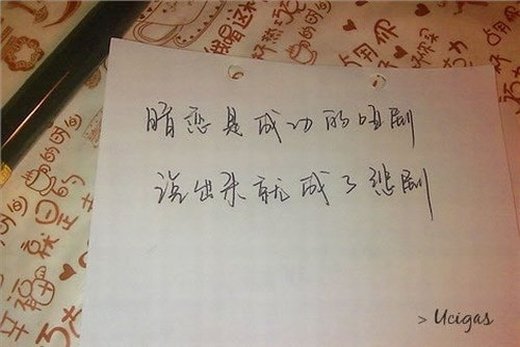 暗恋是成功的哑剧
说出来就成了悲剧
> Ucigas